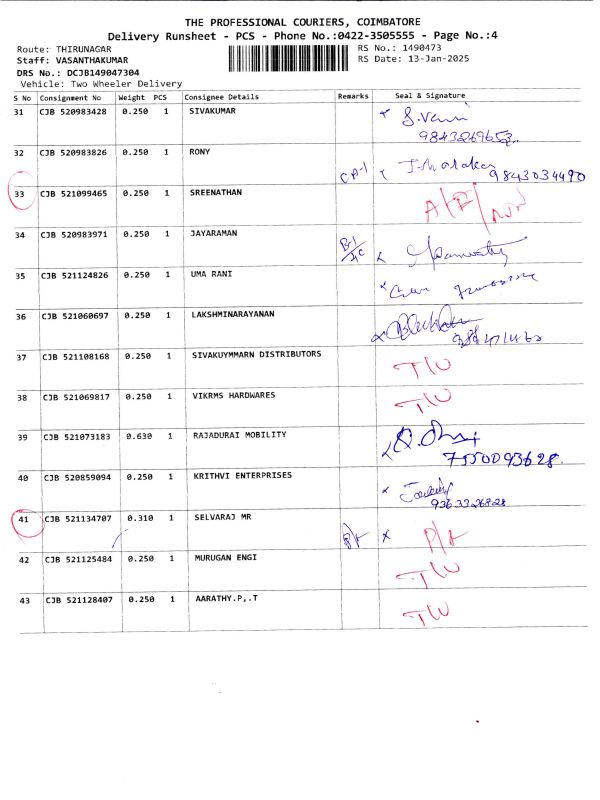 THE PROFESSIONAL COURIERS, COIMBATORE
Delivery Runsheet - PCS - Phone No.:0422-3505555 - Page No.:4
Route: THIRUNAGAR RS No.: 1490473
Staff: VASANTHAKUMAR RS Date: 13-Jan-2025
DRS No.: DCJB149047304
Vehicle: Two Wheeler Delivery
S No Consignment No Weight PCS Consignee Details Remarks Seal & Signature
31 CJB 520983428 0.250 1 SIVAKUMAR
32 CJB 520983826 0.250 1 RONY 9843034490
33 CJB 521099465 0.250 1 SREENATHAN
34 CJB 520983971 0.250 1 JAYARAMAN
35 CJB 521124826 0.250 1 UMA RANI
36 CJB 521060697 0.250 1 LAKSHMINARAYANAN
37 CJB 521108168 0.250 1 SIVAKUYMMARN DISTRIBUTORS T/W
38 CJB 521069817 0.250 1 VIKRMS HARDWARES T.W
39 CJB 521073183 0.630 1 RAJADURAI MOBILITY
7550093628.
40 CJB 520859094 0.250 1 KRITHVI ENTERPRISES
9363326828
41 CJB 521134707 0.310 1 SELVARAJ MR P/A
42 CJB 521125484 0.250 1 MURUGAN ENGI T/W
43 CJB 521128407 0.250 1 AARATHY.P,.T T/W